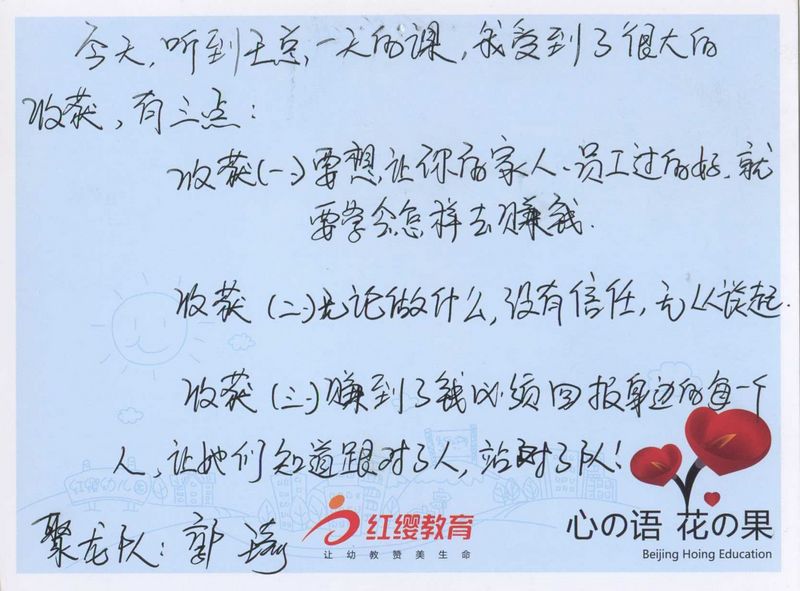 今天,听到王总,一天的课,我受到了很大的
收获,有三点:
收获(一)要想让你的家人、员工过的好,就
要学会怎样去赚钱.
收获(二)无论做什么,没有信任,无从谈起.
收获(三)赚到了钱必须回报身边的每一个
人,让她们知道跟对了人,站对了队!
聚龙队:郭琦
红缨教育
让幼教赞美生命
心の语 花の果
Beijing Hoing Education